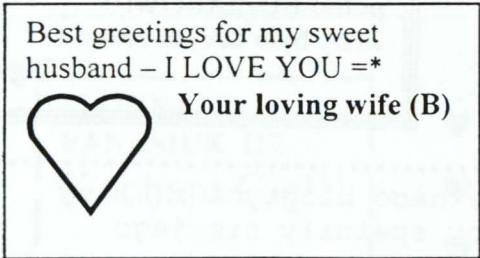 Best greetings for my sweet
husband – I LOVE YOU =*
Your loving wife (B)